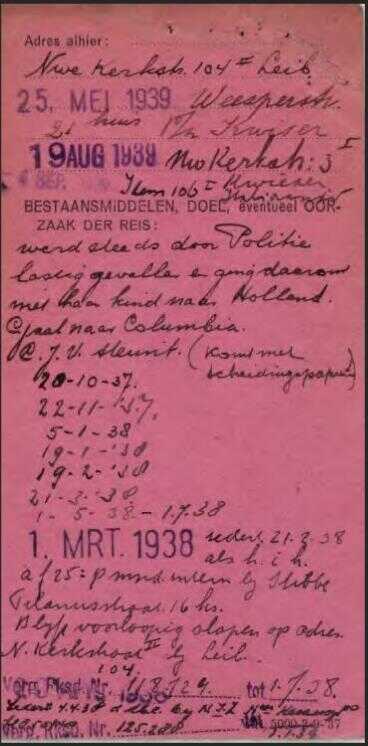 Adres alhier:
Nwe Kerkstr. 104 II Leib.
25. MEI 1939 Weesperstr.
21 huis
19 AUG 1939 Nw Kerkstr: 3 I
4 SEP.
BESTAANSMIDDELEN, DOEL, eventueel OOR-
ZAAK DER REIS:
werd steeds door Politie
lastig gevallen en ging daarom
met haar kind naar Holland.
Gaat naar Columbia.
C.J.V. steunt. (Komt met
scheidingspapieren)
20-10-37.
22-11-'37.
5-1-38
19-1-'38
19-2-'38
21-3-'38
1-5-38-1.7.38
1. MRT. 1938 sedert 21.2.38
als h.i.h.
af 25:- p mnd. intern bij Stibbe
Tilanusstraat 16 hs.
Blijft voorloopig slapen op adres.
N. Kerkstraat II bij Leib.
104.
Verm. Rksd. Nr. 118724 tot 1.7.38.
Verm. Rksd. Nr. 125.200 tot
5000-2-9-37